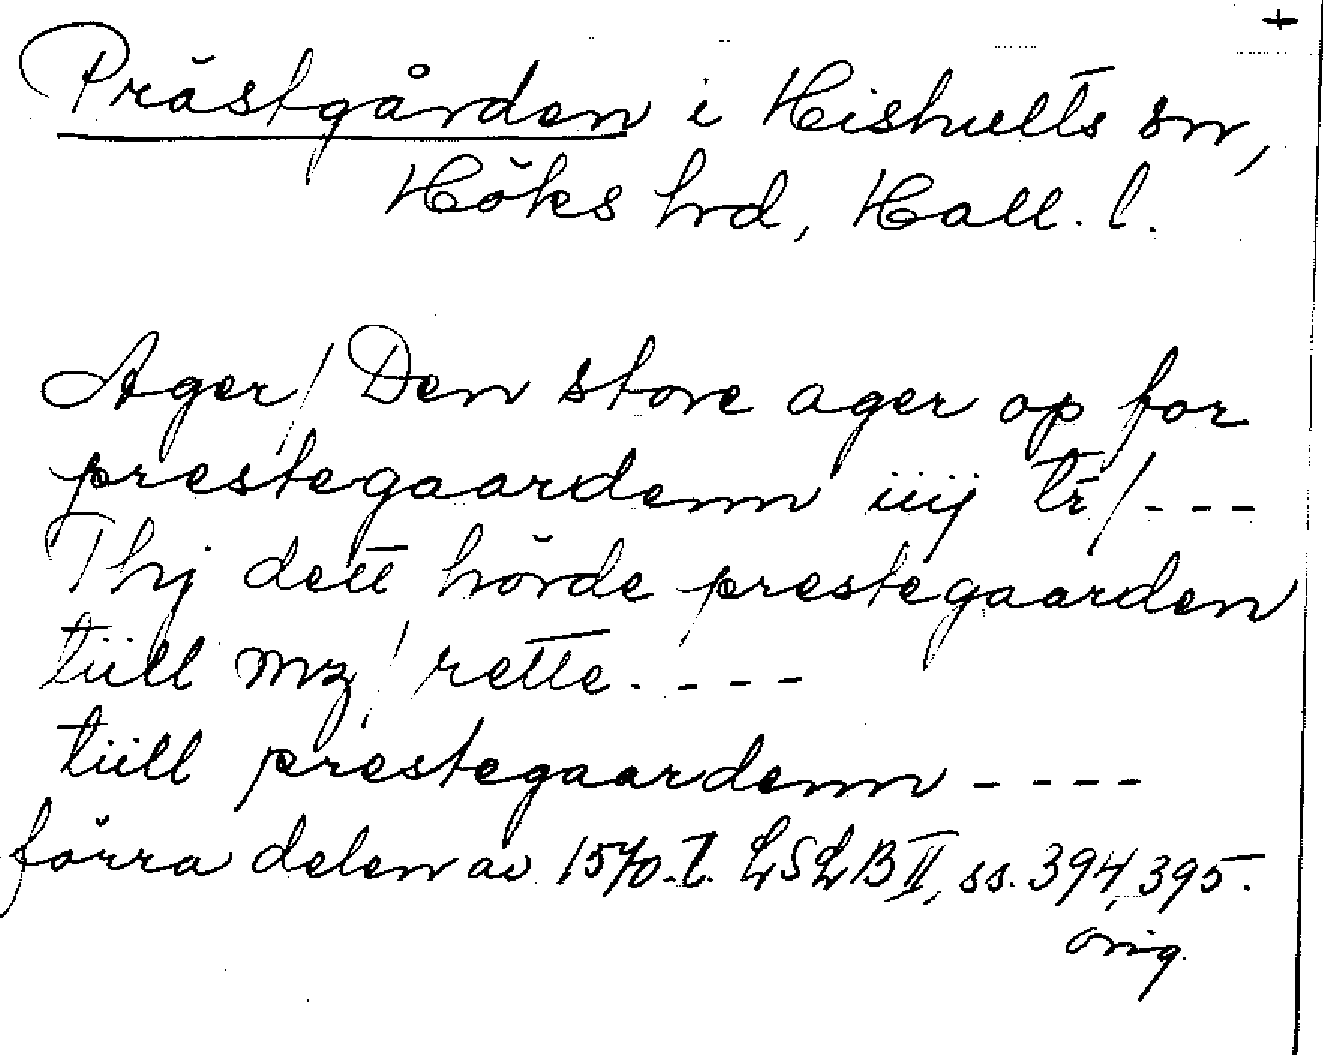 +
Prästgården i Hishults sn,
Höks hrd, Hall. l.
Ager / Den store ager op for
prestegaardenn iiij tr / - - -
Thj dett hörde prestegaarden
tiill mz / rette. - - - -
tiill prestegaardenn - - - -
förra delen av 1570.t. LSLB II, ss. 394, 395.
orig.